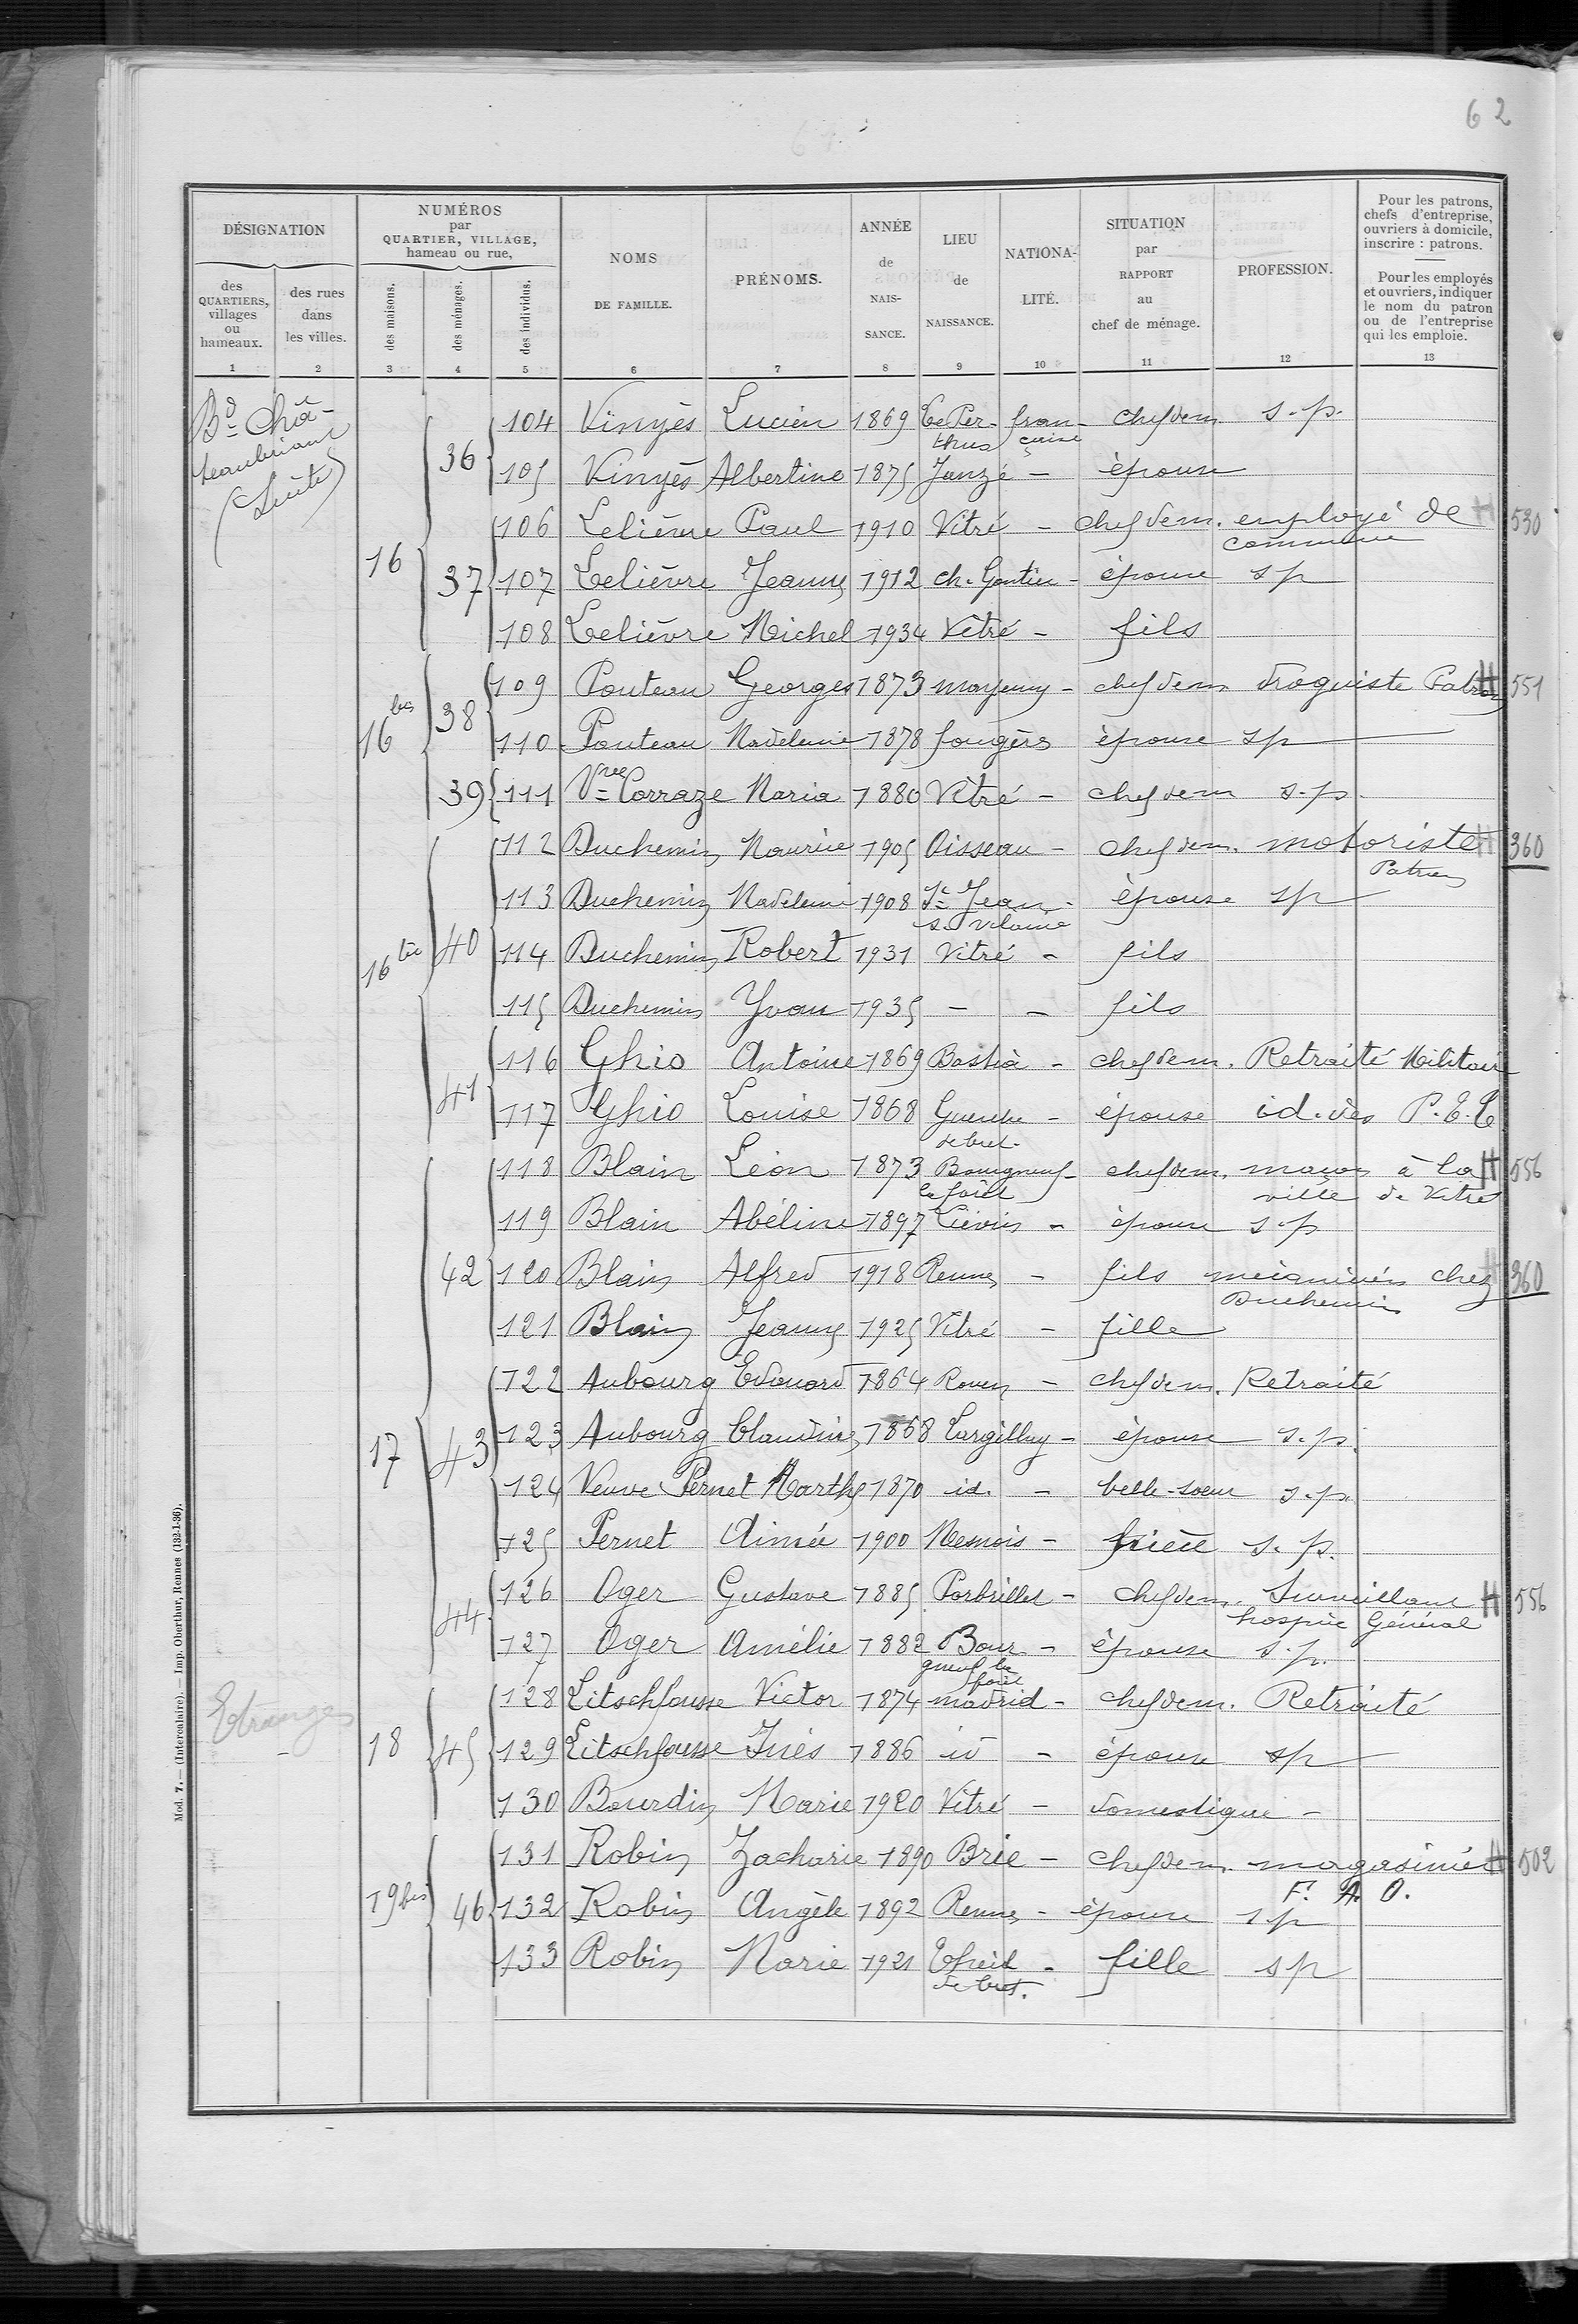 62
DÉSIGNATION
NUMÉROS
par
QUARTIER, VILLAGE,
hameau ou rue,
des
QUARTIERS,
villages
ou
hameaux.
des rues
dans
les villes.
des maisons.
des ménages.
des individus.
NOMS
DE FAMILLE.
PRÉNOMS.
ANNÉE
de
NAIS-
SANCE.
LIEU
de
NAISSANCE.
NATIONA-
LITÉ.
SITUATION
par
RAPPORT
au
chef de ménage.
PROFESSION.
Pour les patrons,
chefs d'entreprise,
ouvriers à domicile,
inscrire : patrons.
Pour les employés
et ouvriers, indiquer
le nom du patron
ou de l'entreprise
qui les emploie.
1 2 3 4 5 6 7 8 9 10 11 12 13
Bd Châ-
teaubriant
(Suite)
36 104 Vinyès Lucien 1869 Le Per- fran- chef dem s.p.
thus çaise
105 Vinyès Albertine 1875 Janzé - épouse
16 37 106 Lelièvre Paul 1910 Vitré - chef dem. employé de H 530
commune
107 Lelièvre Jeanne 1912 ch. Gontier - épouse sp
108 Lelièvre Michel 1934 Vitré - fils
16 bis 38 109 Pouteau Georges 1873 mayenne - chef dem droguiste Patron H 551
110 Pouteau Madeleine 1878 fougères épouse sp
39 111 Vve Corraze Maria 1880 Vitré - chef dem s.p.
16 ter 40 112 Duchemin Maurice 1905 Oisseau - chef dem. motoriste H 360
Patron
113 Duchemin Madeleine 1908 St Jean - épouse sp
s. vilaine
114 Duchemin Robert 1931 Vitré - fils
115 Duchemin Yvon 1935 - - fils
41 116 Ghio Antoine 1869 Bastia - chef dem. Retraité Militaire
117 Ghio Louise 1868 Guerche - épouse id. des P.T.T
de bret.
17 42 118 Blain Léon 1873 Bourgneuf - chef dem. manœ à la H 556
la forêt ville de Vitré
119 Blain Abéline 1897 Liévin - épouse s.p
120 Blain Alfred 1918 Rennes - fils mécanicien chez H 360
Duchemin
121 Blain Jeanne 1925 Vitré - fille
43 122 Aubourg Edouard 1864 Rouen - chef dem. Retraité
123 Aubourg Claudine 1868 - épouse s.p.
124 Veuve Pernet Marthe 1870 id. - belle-soeur s.p.
125 Pernet Aimée 1900 - nièce s.p.
44 126 Oger Gustave 1885 Porbrillet - chef dem. Surveillant H 556
hospice Général
127 Oger Amélie 1882 Bour - épouse s.p.
gneuf la
forêt
Etranger
-
18 45 128 Litschfousse Victor 1874 madrid - chef dem. Retraité
129 Litschfousse Inès 1886 id - épouse sp
130 Bourdin Marie 1920 Vitré - domestique -
19 bis 46 131 Robin Zacharie 1890 Brie - chef dem. magasinier H 502
F. A. O.
132 Robin Angèle 1892 Rennes - épouse sp
133 Robin Marie 1921 Theil - fille sp
de bret.
Mod. 7. — (Intercalaire). — Imp. Oberthur, Rennes (132-1-36).